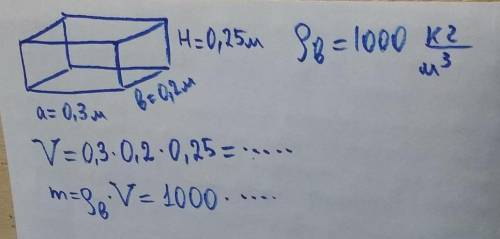 H=0,25м
ρв=1000 кг/м³
в=0,2м
a=0,3м
V=0,3·0,2·0,25=·····
m=ρв·V=1000·····